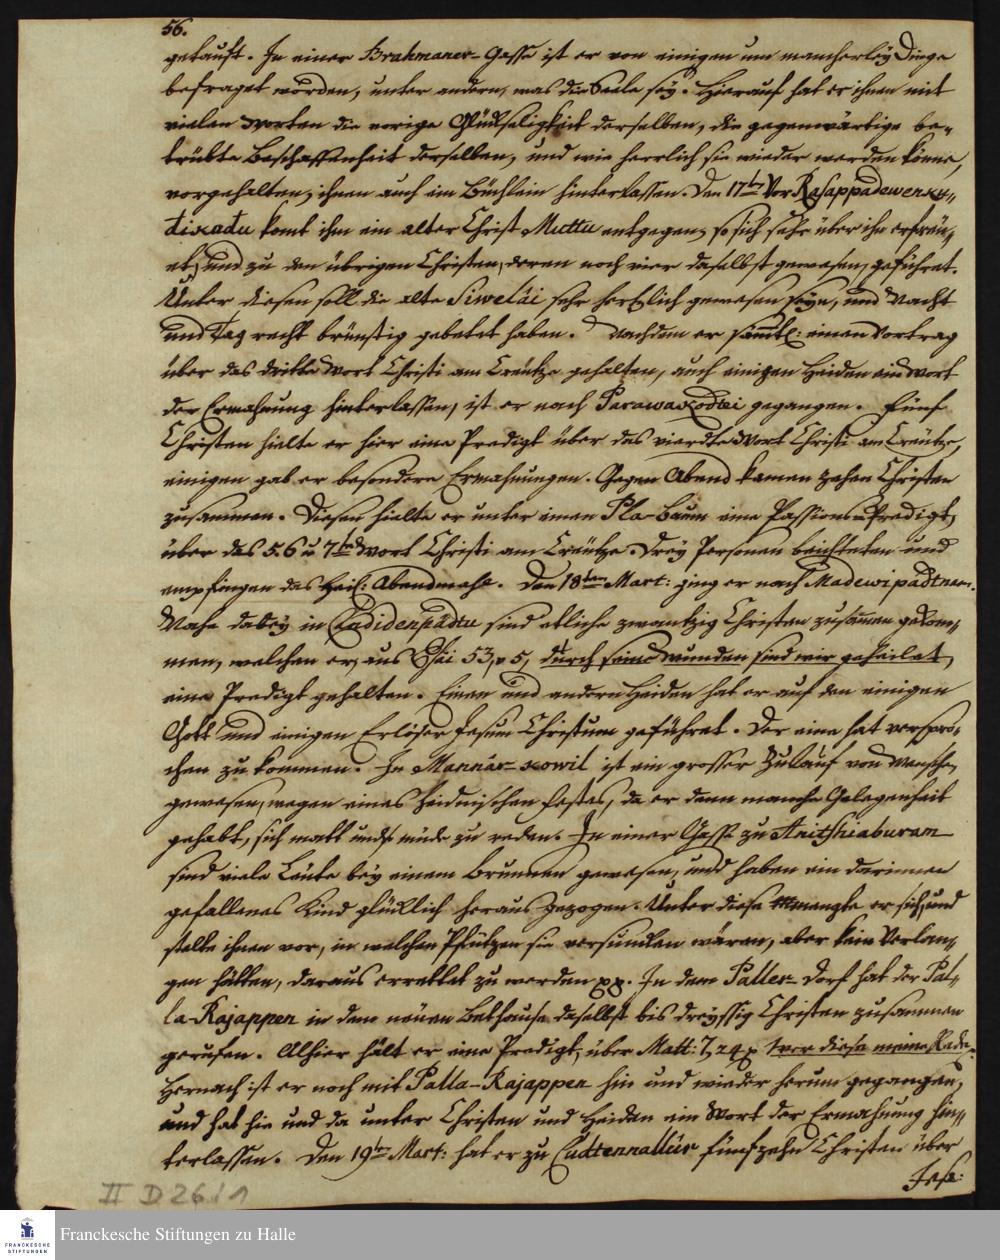 56.
getauft. In einer Brahmaner-Gasse ist er von einigen um mancherley Dinge
befraget worden, unter andern, was die Seele sey. Hierauf hat er ihnen mit
vielen Worten die vorige Glückseligkeit derselben, die gegenwärtige be-
trübte Beschaffenheit derselben, und wie herrlich sie wieder werden könne,
vorgehalten, ihnen auch ein Büchlein hinterlassen. Den 17ten Vor Rasappadewenxu-
dixadu komt ihm ein alter Christ Muttu entgegen, so sich sehr über ihn erfreu-
et, und zu den übrigen Christen, deren noch vier daselbst gewesen, geführet.
Unter diesen soll die alte Siwelái sehr hertzlich gewesen seyn, und Nacht
und Tag recht brünstig gebetet haben. Nachdem er sämtl: einen Vortrag
über das dritte Wort Christi am Creutze gehalten, auch einigen Heiden ein Wort
der Ermahnung hinterlassen, ist er nach Parawaxodtei gegangen. Fünf
Christen hielte er hier eine Predigt über das vierdte Wort Christi am Creutze,
einigen gab er besondere Ermahnungen. Gegen Abend kamen zehen Christen
zusammen. Diesen hielte er unter einem Pla-Baum eine Passions-Predigt,
über das 5. 6 u 7te Wort Christi am Creutze. Drey Personen beichteten und
empfingen das Heil: Abendmahl. Den 18ten Mart: ging er nach Madewipadtnam.
Nahe dabey in Cudidenpádtu sind etliche zwantzig Christen zusamen gekom-
men, welchen er, aus Esai 53, v 5, durch seine Wunden sind wir geheilet,
eine Predigt gehalten. Einen und andern Heiden hat er auf den einigen
Gott und einigen Erlöser Jesum Christum geführet. Der eine hat verspro-
chen zu kommen. In Mannár-xowil ist ein grosser Zulauf von Menschen
gewesen, wegen eines heidnischen Festes, da er denn manche Gelegenheit
gehabt, sich matt und müde zu reden. In einer Gasse zu Anitshiaburam
sind viele Leute bey einem Brunnen gewesen, und haben ein darinnen
gefallenes Kind glücklich heraus gezogen. Unter diese mengte er sich, und
stelte ihnen vor, in welchen Pfützen sie versuncken wären, aber kein Verlan-
gen hätten, daraus errettet zu werden pp. In dem Paller-Dorf hat der Pal-
la-Rajappen in dem neuen Bethause daselbst bis dreyssig Christen zusammen
gerufen. Alhier hält er eine Predigt, über Matt: 7, 24 p wer diese meine Rede p.
Hernach ist er noch mit Palla-Rajappen hin und wieder herum gegangen,
und hat hie und da unter Christen und Heiden ein Wort der Ermahnung hin-
terlassen. Den 19ten Mart: hat er zu Cudtennallúr funfzehn Christen über
Jesa:
II D 26 / 1
FRANCKESCHE
STIFTUNGEN
Franckesche Stiftungen zu Halle